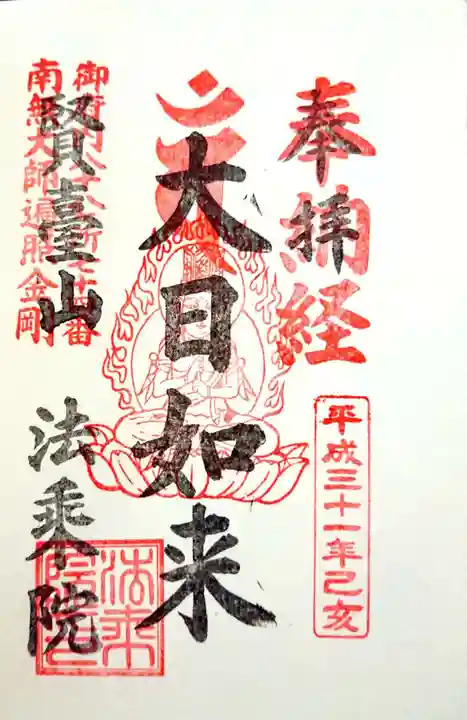 奉納経
拝
平成三十一年己亥
大日如来
御府内八十八ヶ所七十四番
南無大師遍照金剛
賢臺山
法乗院
法乗院